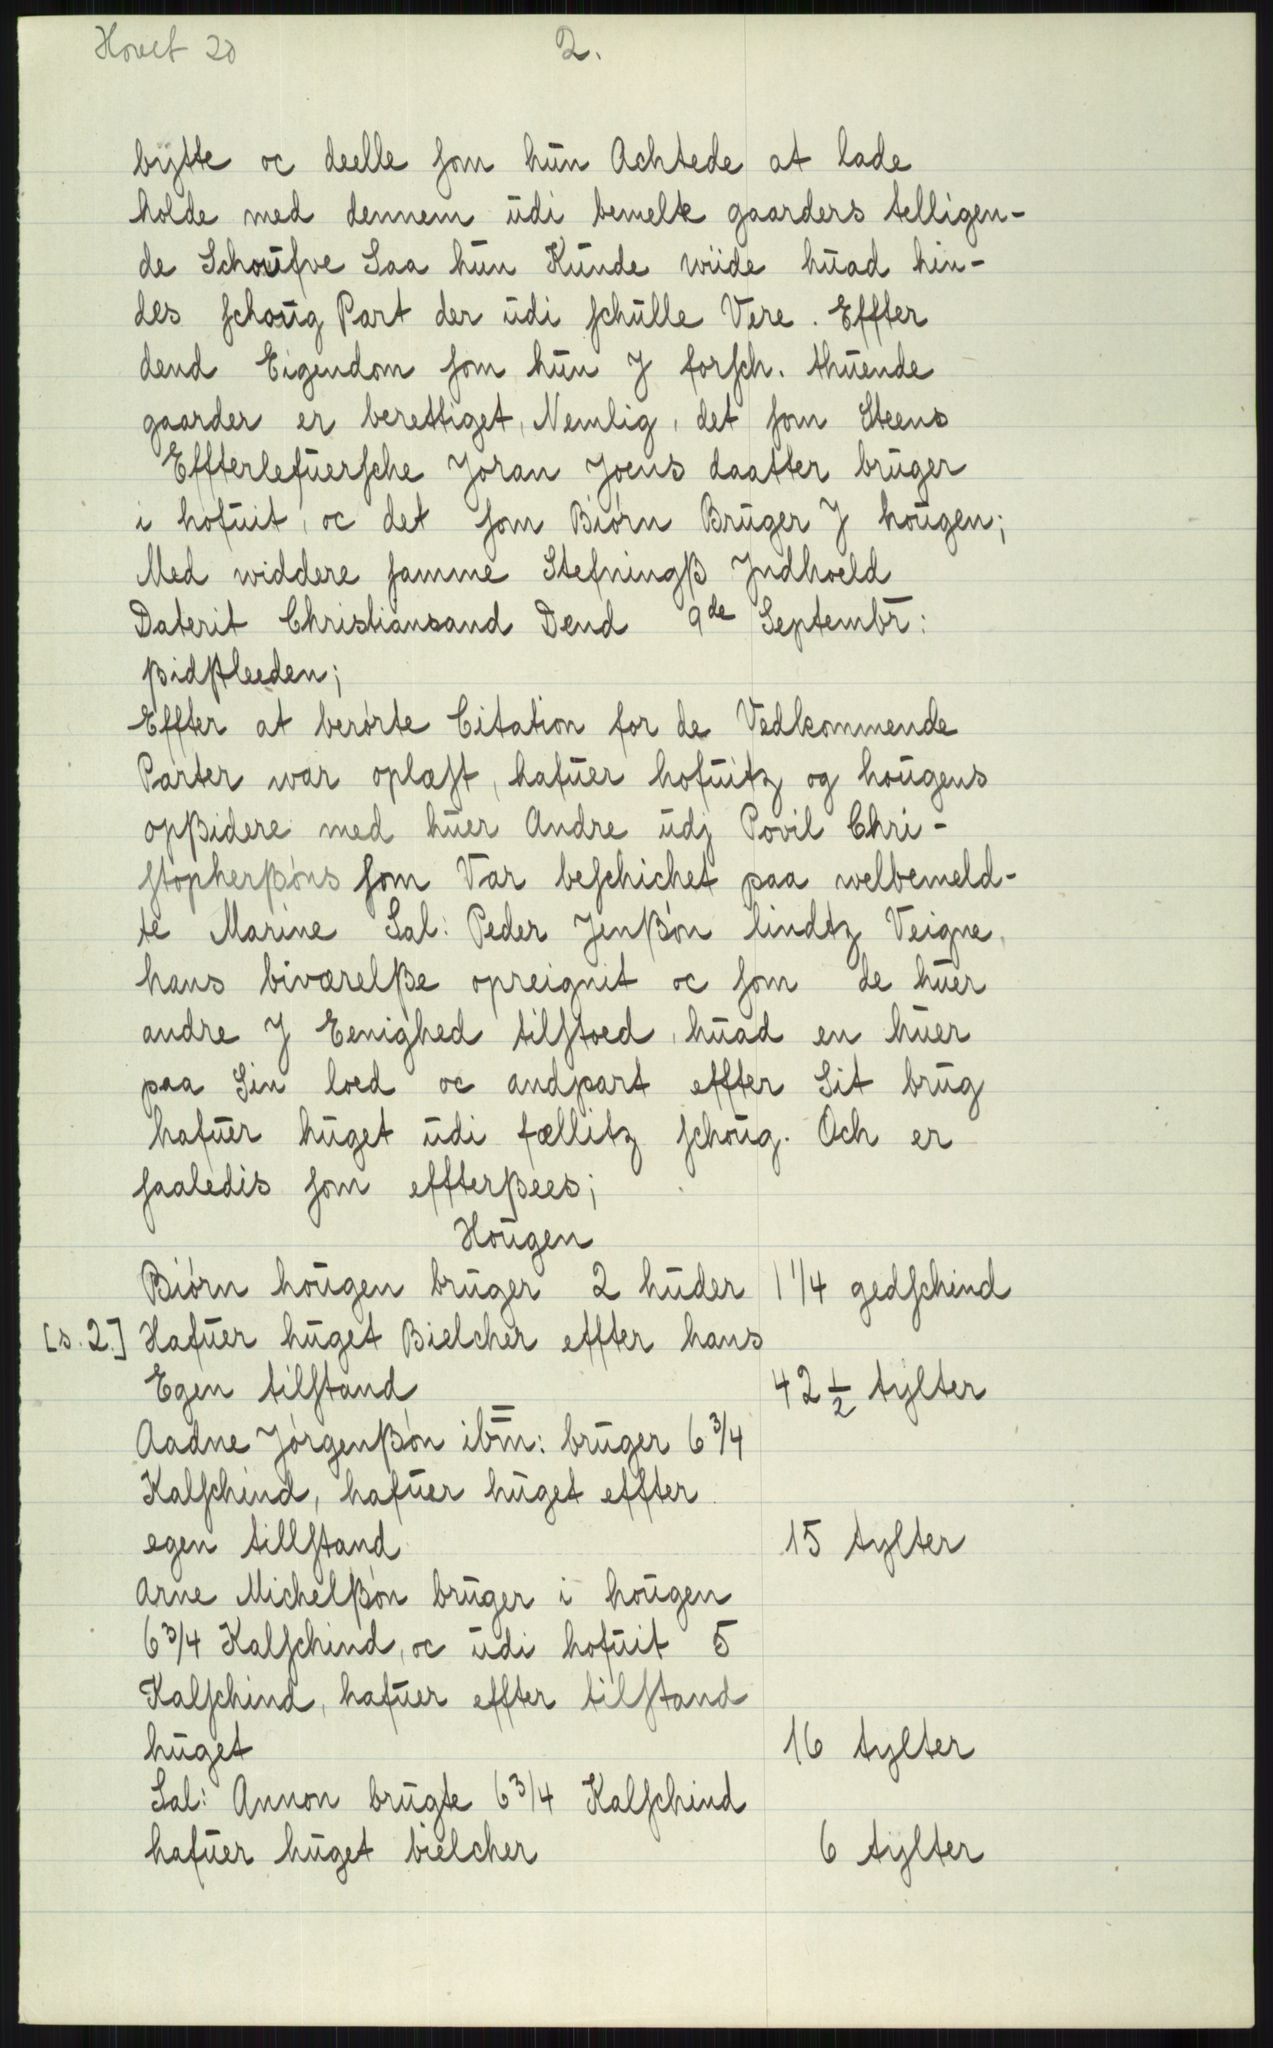 Hovet 20
2.
bytte oc deelle som hun Achtede at lade
holde med dennem udi bemelte gaarders telligen-
de Schoufve Saa hun Kunde wiide huad hin-
des schoug Part der udi schulle Vere. Effter
dend Eigendom som hun J forsch. thuende
gaarder er berettiget, Nemlig, det som Steens
Effterlefuersche Joran Joens daatter bruger
i hofuit, oc det som Biørn Bruger J hougen;
Med widdere samme Stefningß Jndhoeld
Daterit Christiansand Dend 9de Septembr̄:
ßidstleeden;
Effter at berørte Citation for de Vedkommende
Parter war oplæst, hafuer hofuitz og hougens
opßidere med huer Andre udj Povil Chri-
stopherßøns som Var beschichet paa welbemeld-
te Marine Sal: Peder Jenßøn lindtz Veigne,
hans biværelße opreignit oc som de huer
andre J Eenighed tilstoed, huad en huer
paa Sin loed oc andpart effter Sit brug
hafuer huget udi fællitz schoug. Och er
saaledis som effterßees;
Hougen
Biørn hougen bruger 2 huder 1 1/4 gedschind
[s. 2.] Hafuer huget Bielcher effter hans
Egen tilstand 42 1/2 tylter
Aadne Jørgenßøn ibm̄: bruger 6 3/4
Kalschind, hafuer huget effter
egen tillstand 15 tylter
Arne Michelßøn bruger i hougen
6 3/4 Kalschind, oc udi hofuit 5
Kalschind, hafuer effter tilstand
huget 16 tylter
Sal: Annon brugte 6 3/4 Kalschind
hafuer huget bielcher 6 tylter